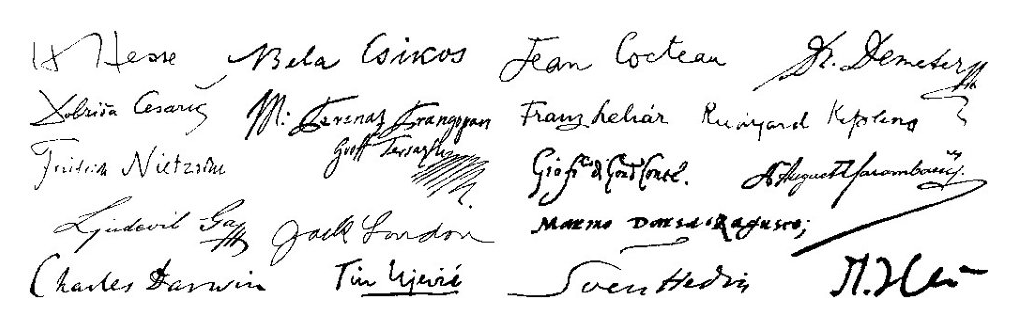 H Hesse Bela Csikos Jean Cocteau Dr. Demeter
Dobriša Cesarić M: Ferenaz Frangepan Franz Lehár Rudyard Kipling
Groff Tersaczky
Friedrich Nietzsche August Harambašić
Ljudevit Gaj Jack London Marino Darsa Raguseo;
Charles Darwin Tin Ujević Sven Hedin